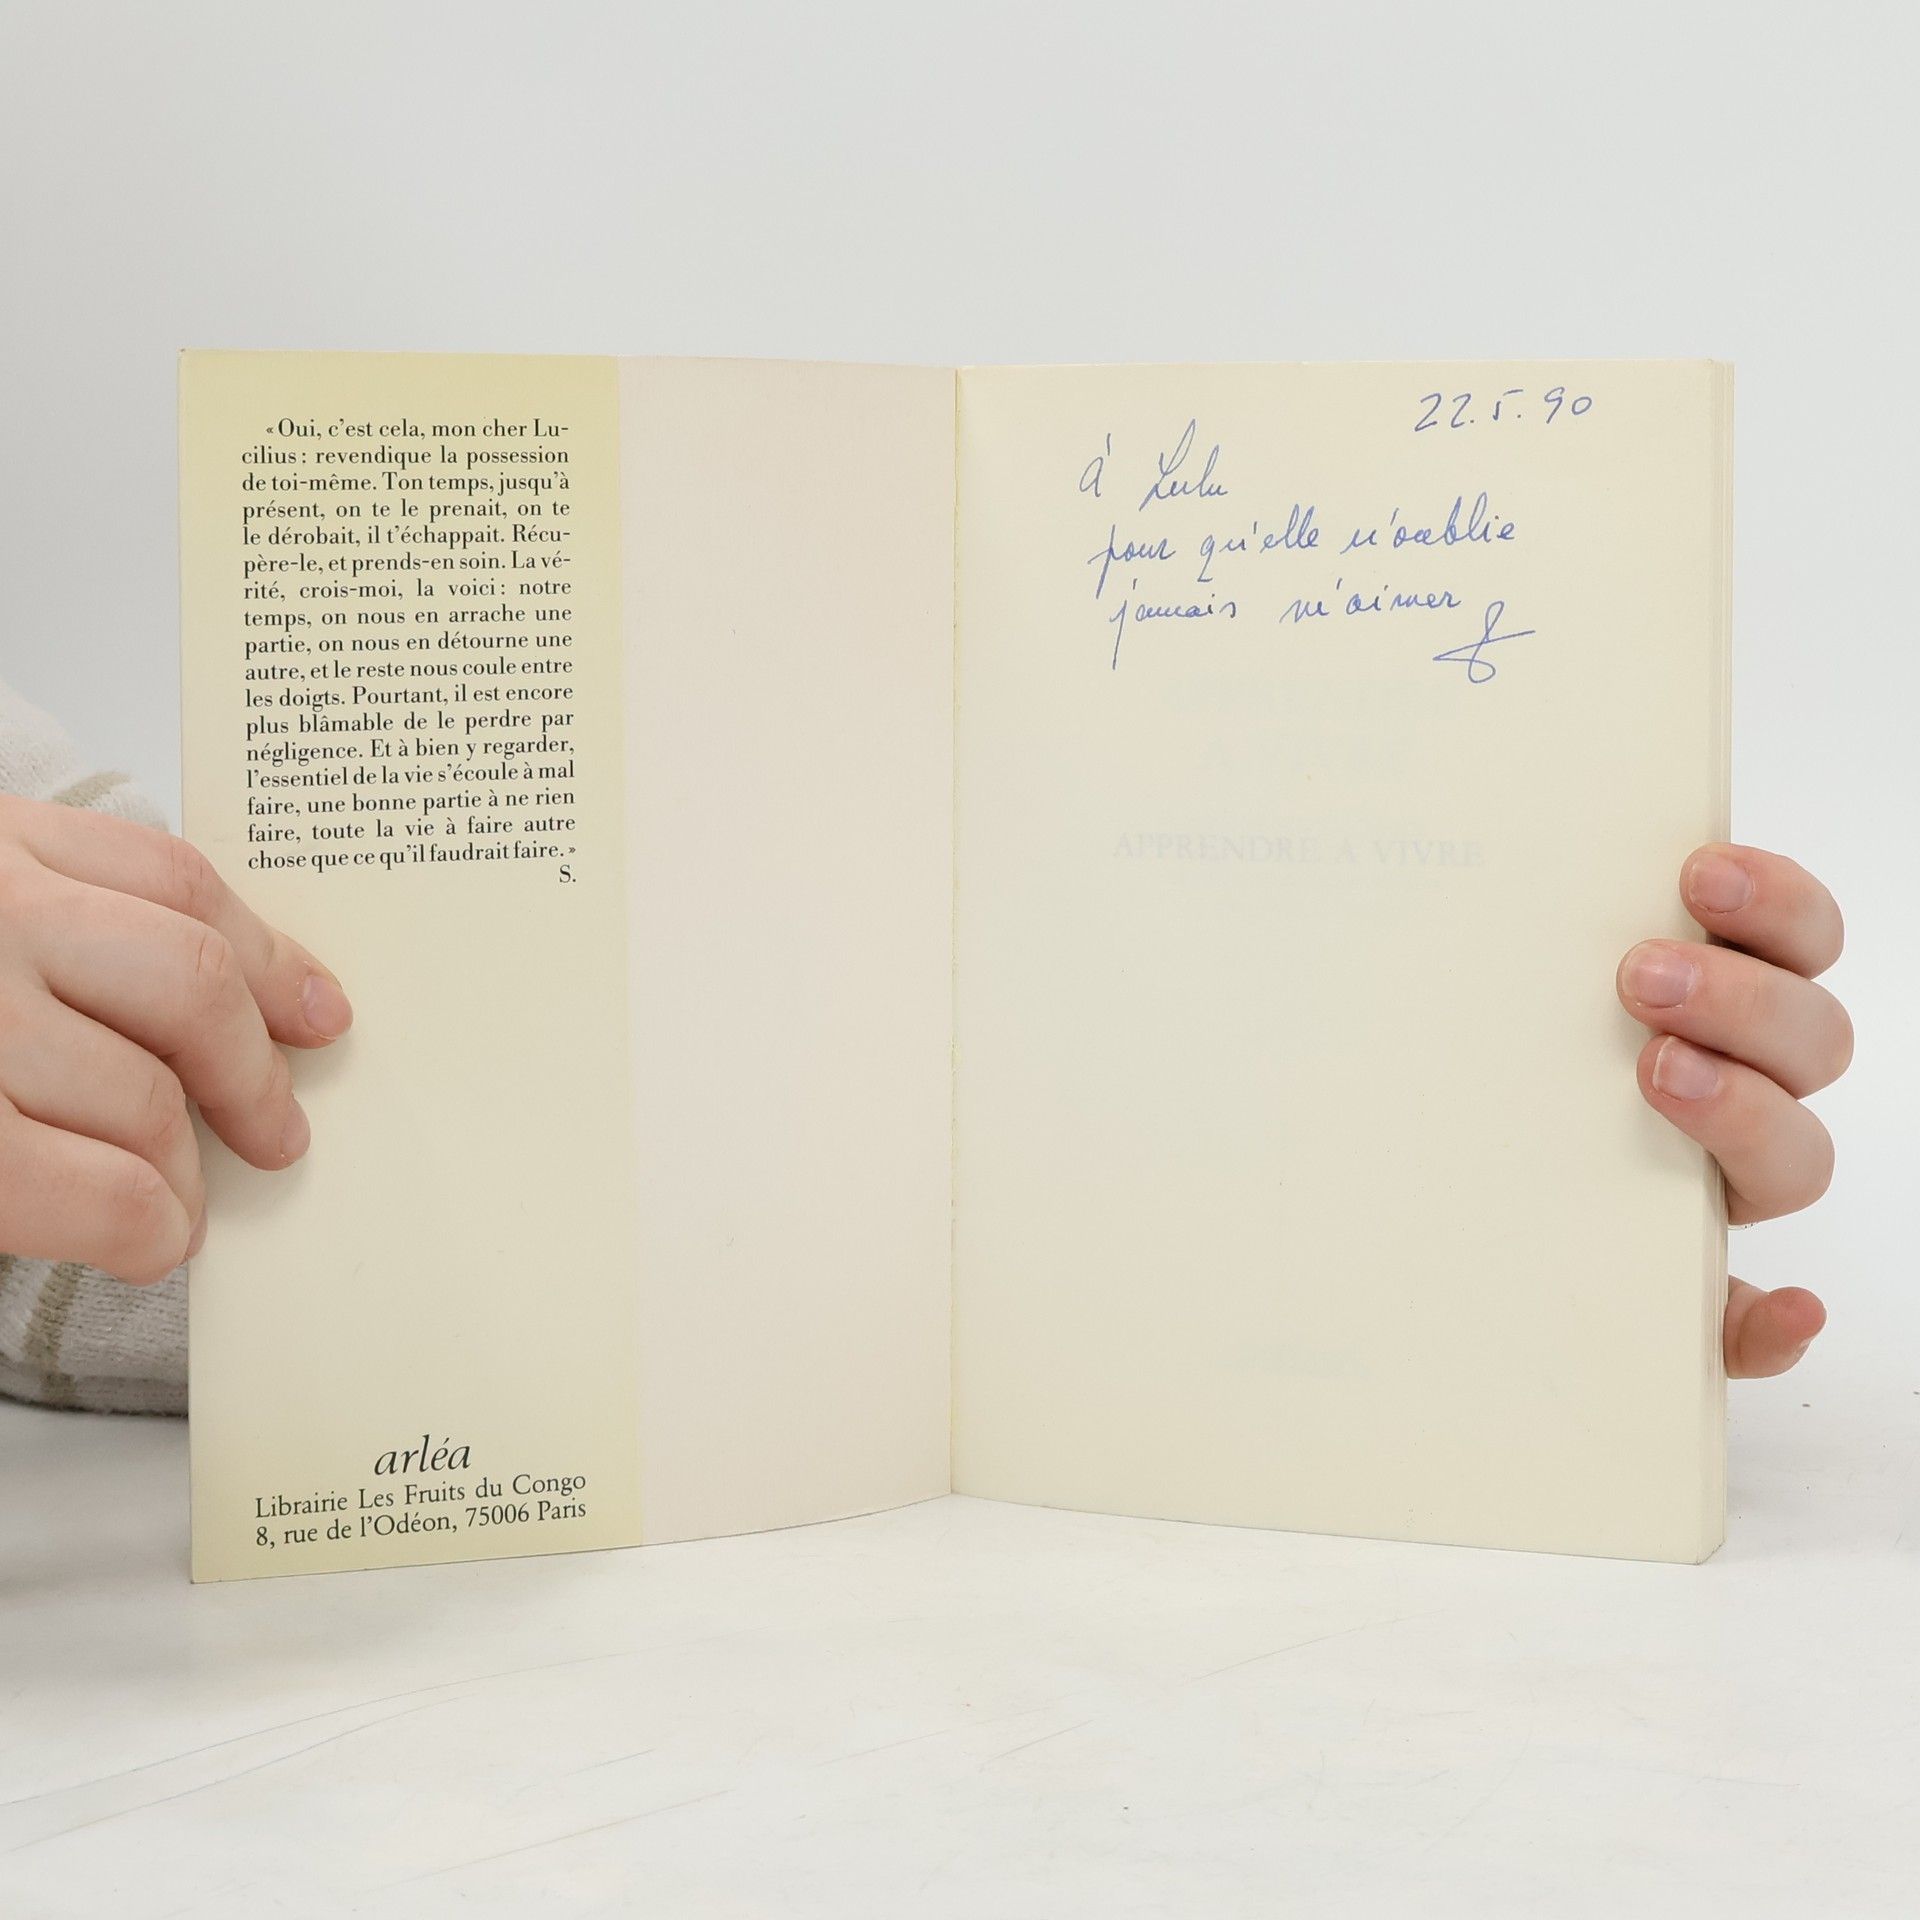 « Oui, c'est cela, mon cher Lu-
cilius : revendique la possession
de toi-même. Ton temps, jusqu'à
présent, on te le prenait, on te
le dérobait, il t'échappait. Récu-
père-le, et prends-en soin. La vé-
rité, crois-moi, la voici : notre
temps, on nous en arrache une
partie, on nous en détourne une
autre, et le reste nous coule entre
les doigts. Pourtant, il est encore
plus blâmable de le perdre par
négligence. Et à bien y regarder,
l'essentiel de la vie s'écoule à mal
faire, une bonne partie à ne rien
faire, toute la vie à faire autre
chose que ce qu'il faudrait faire. »
S.
arléa
Librairie Les Fruits du Congo
8, rue de l'Odéon, 75006 Paris
22.5.90
À Lulu
pour qu'elle n'oublie
jamais m'aimer
APPRENDRE A VIVRE